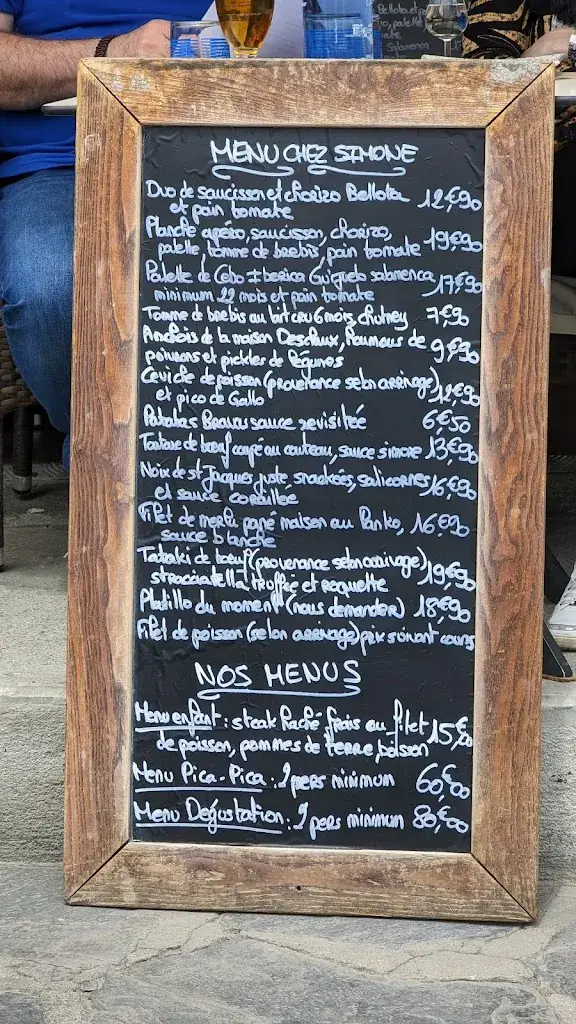 Bellota et p
MENU CHEZ SIMONE
Duo de saucisson et chorizo Bellota 12,€90
et pain tomate
Planche apéro, saucisson, chorizo, 19,€90
palette tomme de brebis, pain tomate
Palette de Cebo Iberica Guijuelo salamanca 17,€90
minimum 22 mois et pain tomate
Tomme de brebis au lait cru 6 mois, chutney 7,€90
Anchois de la maison Desclaux, Houmous de 9,€90
poivrons et pickles de légumes
Ceviche de poisson (provenance selon arrivage) 12,€90
et pico de Gallo
Patatas Bravas sauce revisitée 6,€50
Tartare de bœuf coupé au couteau, sauce simone 13,€90
Noix de st Jacques juste, snackées, salicornes 16,€90
et sauce coraillée
Filet de merlu pané maison au Panko, 16,€90
sauce blanche
Tataki de bœuf (provenance selon arrivage) 19,€90
stracciatella truffée et roquette
Platillo du moment (nous demander) 18,€90
Filet de poisson (selon arrivage) prix suivant cours
NOS MENUS
Menu enfant : steak haché frais ou filet 15,€00
de poisson, pommes de terre, boisson
Menu Pica-Pica : 2 pers minimum 60,€00
Menu Dégustation : 2 pers minimum 80,€00